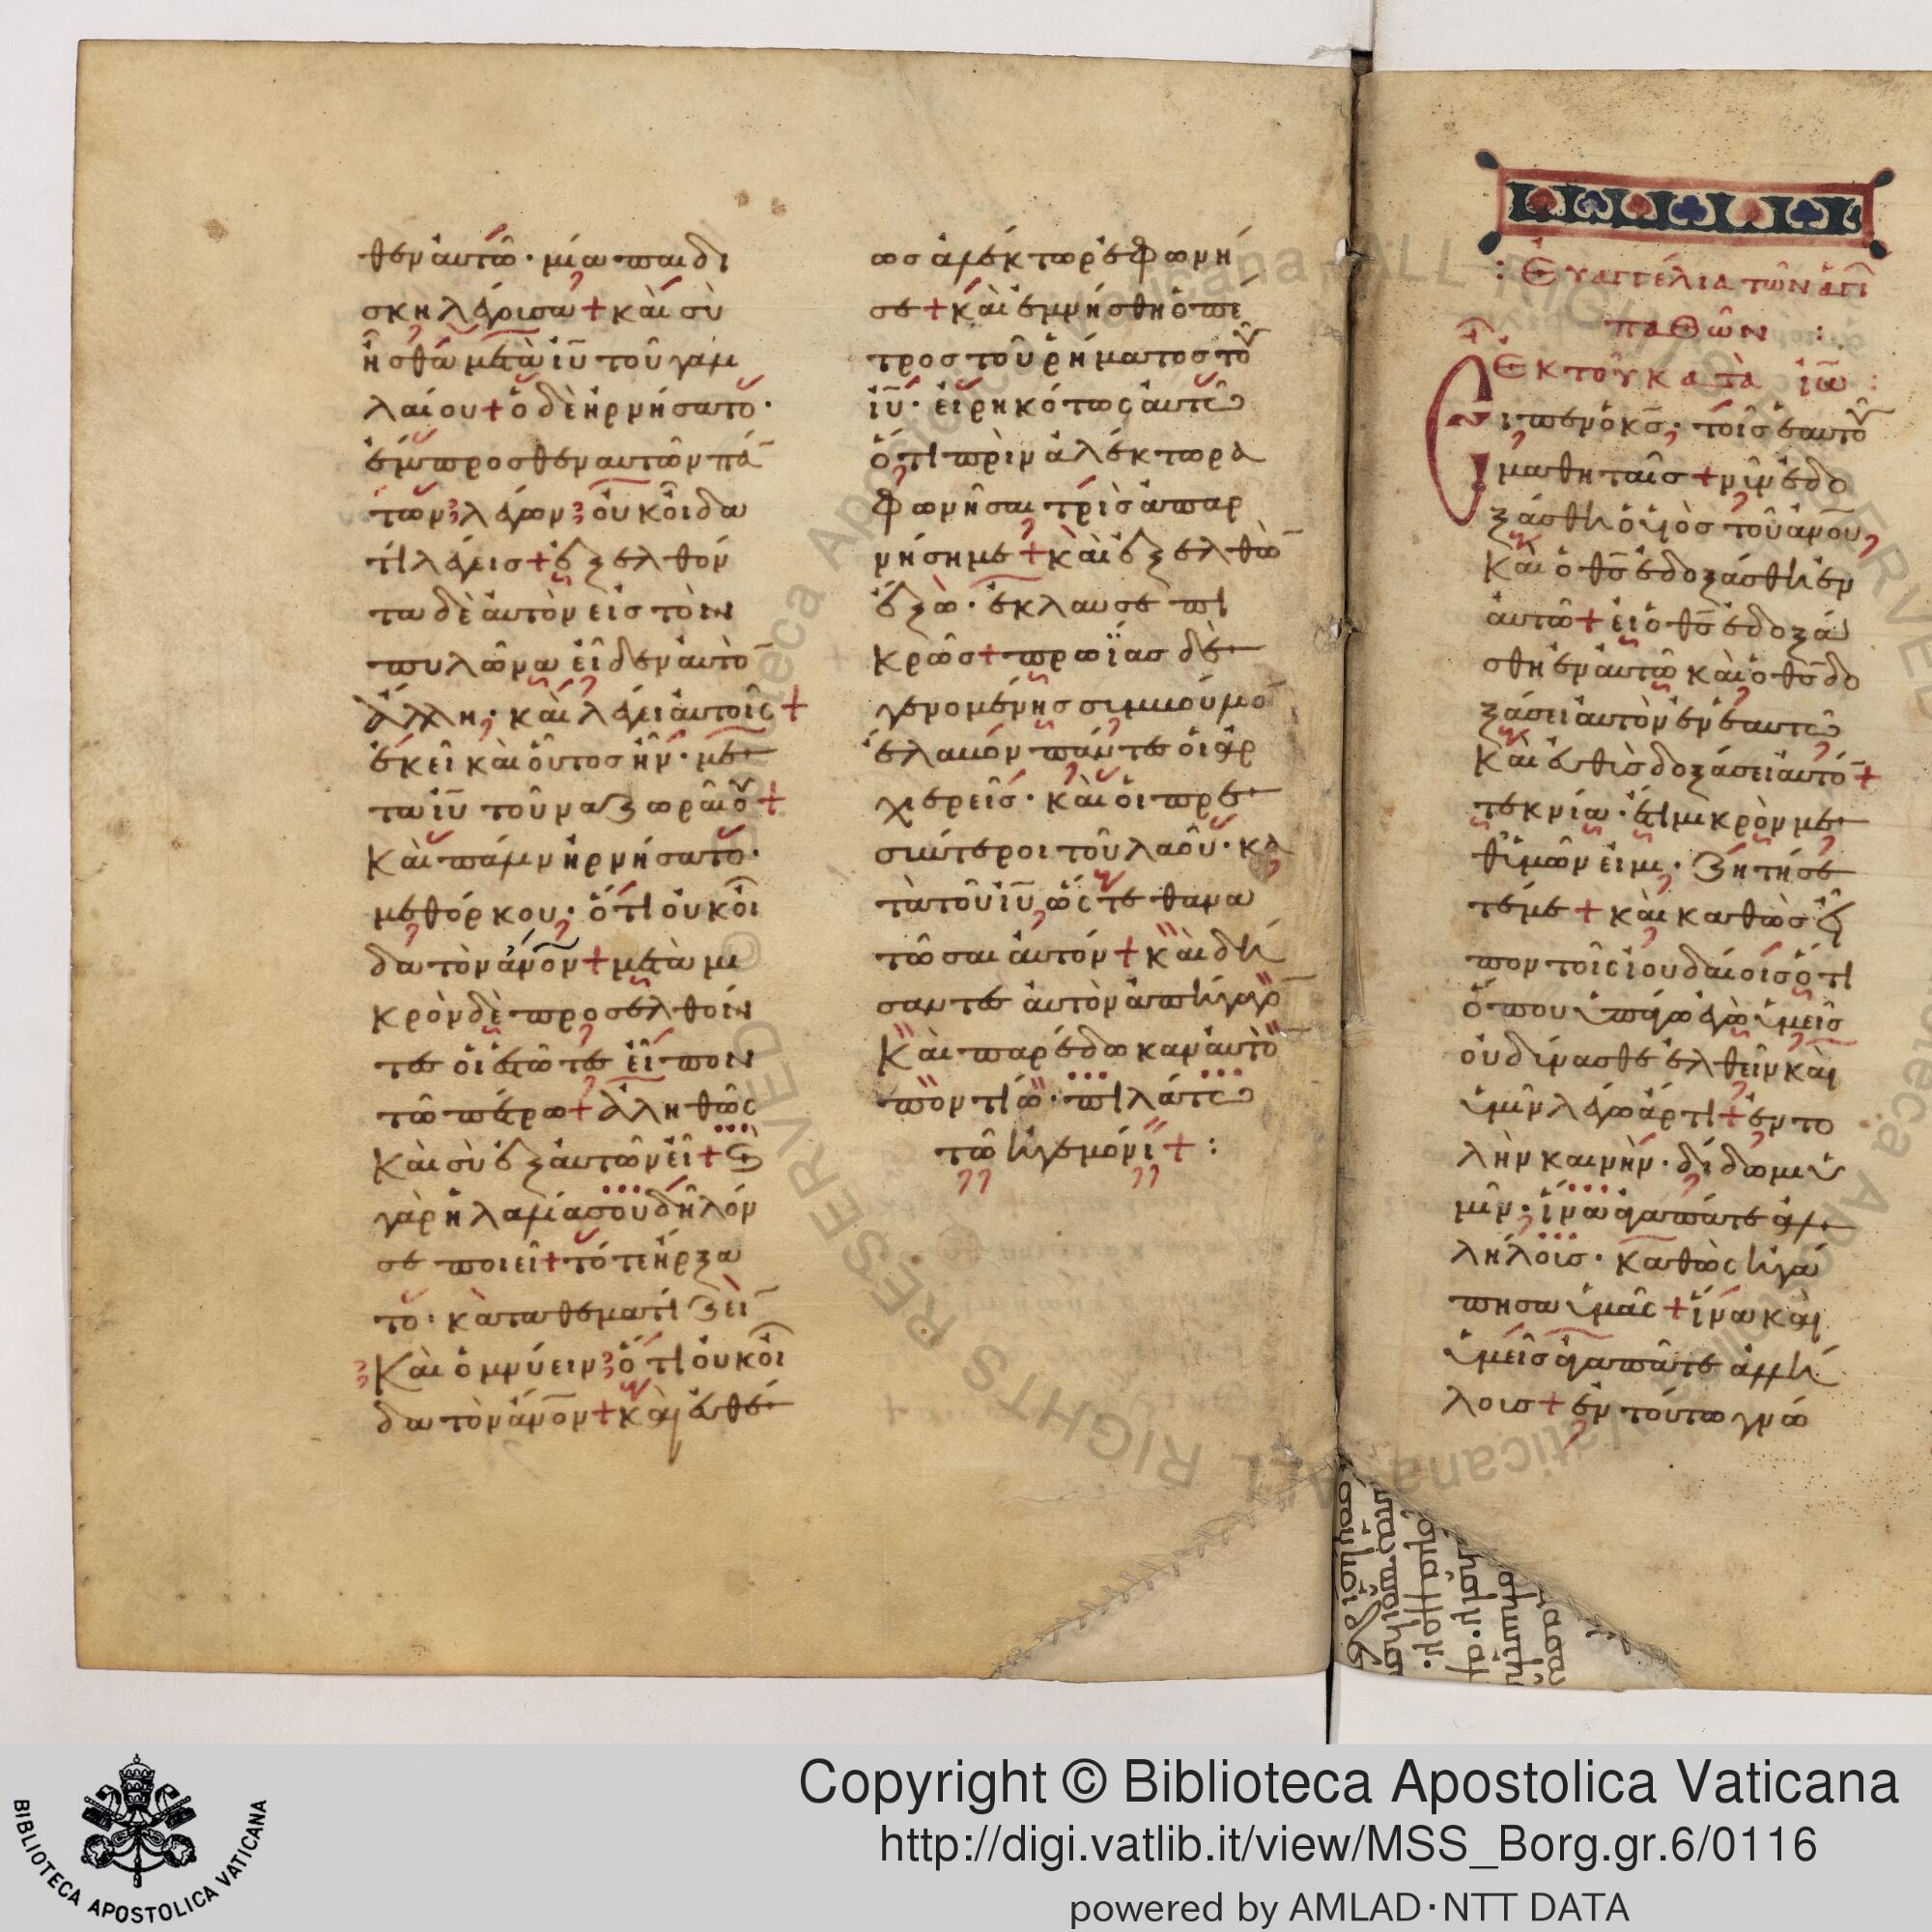 θεν ἀυτῶ· μία παιδι
σκη λέγουσα + καὶ σὺ
ἦσθα μετὰ ἰῦ τοῦ γαλι
λαίου + ὁ δὲ ἠρνήσατο·
ἔμπροσθεν αυτῶν πά
των λέγων οὐκ οἶδα
τί λέγεις + ἐξελθόν
τα δὲ ἀυτὸν εἰς τὸν
πυλῶνα εἶδεν ἀυτὸ
ἄλλη· καὶ λέγει ἀυτοῖς +
ἐκεῖ καὶ οὗτος ἦν· με
τα ἰῦ τοῦ ναζωραίου +
Καὶ πάλιν ἠρνήσατο·
μεθόρκου· ὅτι οὐκ οἶ
δα τὸν ἀνον + μετὰ μι
κρὸν δὲ προσελθόν
τες οἱ ἑστῶτες εἶπον
τῶ πέτρω + ἀληθῶς
Καὶ σὺ ἐξ ἀυτῶν εἶ + Καὶ
γὰρ ἡ λαλιά σου δῆλόν
σε ποιεῖ + τότε ἤρξα
το· κὰταθεματίζει
Καὶ ὀμνύειν ὅτι οὐκ οἶ
δα τὸν ἀνον + κὰι ἐυθέ
ως ἀλέκτωρ ἐφωνη
σε + κὰι ἐμνήσθη ὁ πέ
τρος τοῦ ρήματος τοῦ
ἰῦ· εἰρηκότος ἀυτῶ
ὅτι πρὶν ἀλέκτορα
φωνῆσαι τρὶς ἀπαρ
νήσημε + κὰι ἐξελθὼ
ἔξω· ἔκλαυσε πι
κρῶς + πρωΐας δὲ
γενομένης συμβούλιο
ἔλαβον πάντες οἱ ἀρ
χιερεῖς· κὰι οἱ πρε
σβύτεροι τοῦ λαοῦ· κα
τὰ τοῦ ἰῦ ὥστε θανα
τῶσαι ἀυτόν + κὰι δή
σαντες ἀυτὸν ἀπήγαγο
Κὰι παρέδωκαν ἀυτὸ
ποντίω· πιλάτω
τῶ ἡγεμόνι + :
: Ευαγγέλια τῶν ἁγί
παθῶν :
Εκ τοῦ κατὰ ἰω :
Ειπεν ὁ κς· τοῖς ἑαυτοῦ
μαθηταῖς + νῦν ἐδο
ξάσθη ὁ ὑιὸς τοῦ ἀνου
Κὰι ὁ θς ἐδοξάσθη ἐν
ἀυτῶ + εἰ ὁ θς ἐδοξά
σθη ἐν ἀυτῶ καὶ ὁ θς δο
ξάσει ἀυτὸν ἐν ἑαυτῶ
Κὰι ἐυθὺς δοξάσει ἀυτό +
τεκνία· ἔτι μικρὸν με
θ ὑμῶν εἰμι· ζητήσε
τέ με + κὰι καθὼς εἶ
πον τοῖς ἰουδάιοις ὅτι
ὅπου ὑπάγω ἐγὼ ὑμεῖς
οὐ δύνασθε ἐλθεῖν κὰι
ὑμῖν λέγω ἄρτι + ἐντο
λὴν καινὴν· δίδωμι ὑ
μῖν· ἵνα ἀγαπᾶτε ἀλ
λήλοις· καθὼς ἠγά
πησα ὑμᾶς + ἵνα κὰι
ὑμεῖς ἀγαπᾶτε ἀλλή
λοις + ἐν τούτω γνώ
BIBLIOTECA APOSTOLICA VATICANA
Copyright © Biblioteca Apostolica Vaticana
http://digi.vatlib.it/view/MSS_Borg.gr.6/0116
powered by AMLAD·NTT DATA